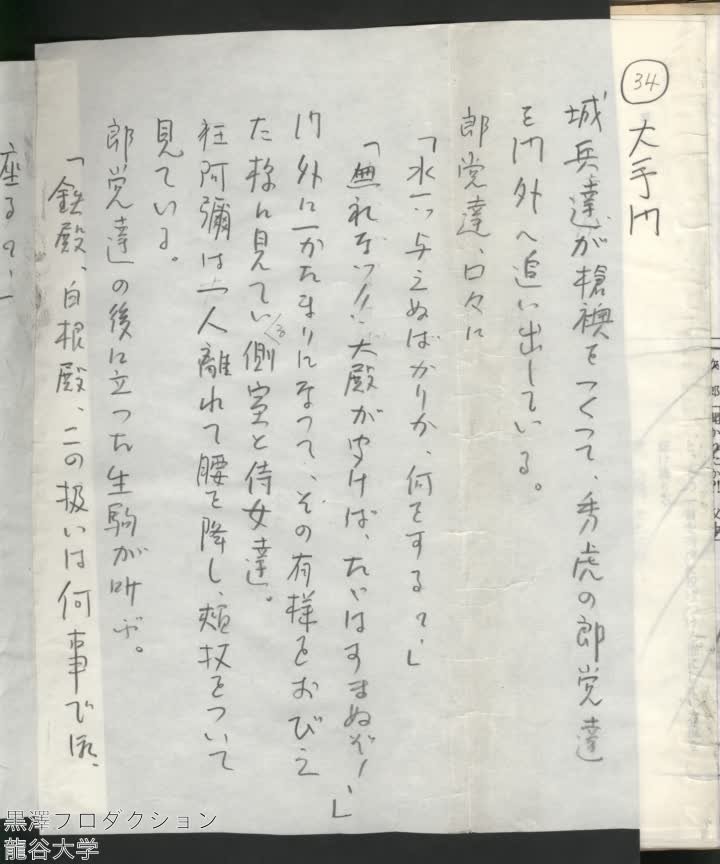 34
大手門
城兵達が槍襖をつくって、秀虎の郎党達
を門外へ追い出している。
郎党達、口々に
「水一ツ与えぬばかりか、何をするの！」
「無礼なッ！！大殿が申けば、たゞはすまぬぞ！」
門外に一かたまりになって、その有様をおびえ
た様に見てい
る
側室と侍女達。
狂阿彌は一人離れて腰を降し、頬杖をついて
見ている。
郎党達の後に立った生駒が叫ぶ。
「鉄殿、白根殿、この扱いは何事で
黒澤プロダクション
龍谷大学